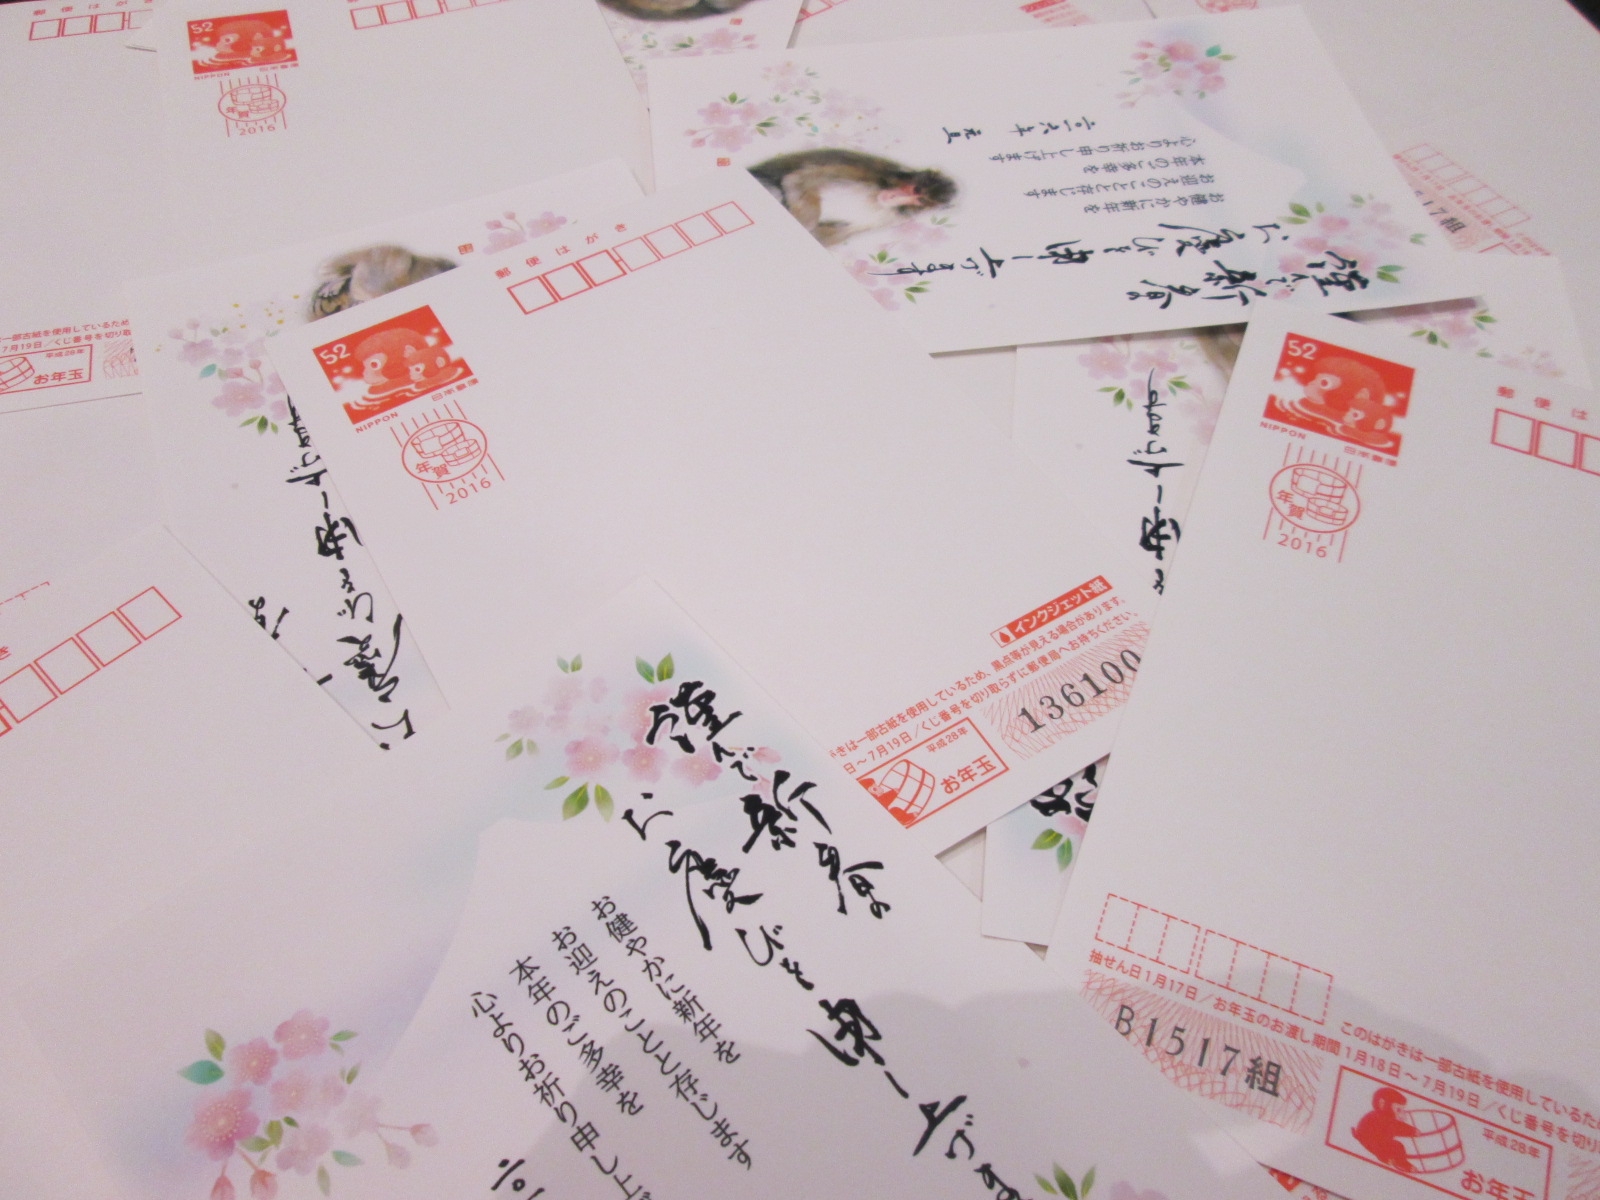 郵便はが
52
NIPPON
日本郵便
年賀
2016
二〇一六年 元旦
謹んで新春の
お慶びを申し上げます
お健やかに新年を
お迎えのことと存じます
本年のご多幸を
心よりお祈り申し上げます
17組
は一部古紙を使用しているため
7月19日/くじ番号を切り取
平成28年
お年玉
郵便はがき
52
NIPPON
日本郵便
年賀
2016
インクジェット紙
がきは一部古紙を使用しているため、黒点等が見える場合があります。
日～7月19日/くじ番号を切り取らずに郵便局へお持ちください。
136100
平成28年
お年玉
郵便は
52
NIPPON
日本郵便
年賀
2016
抽せん日1月17日/お年玉のお渡し期間1月18日～7月19日/くじ番号を切り
このはがきは一部古紙を使用しているため
B1517組
平成28年
お年玉
き
謹んで新春の
お慶びを申し上げま
お健やかに新年を
お迎えのことと存じます
本年のご多幸を
心よりお祈り申し上げ
二〇一